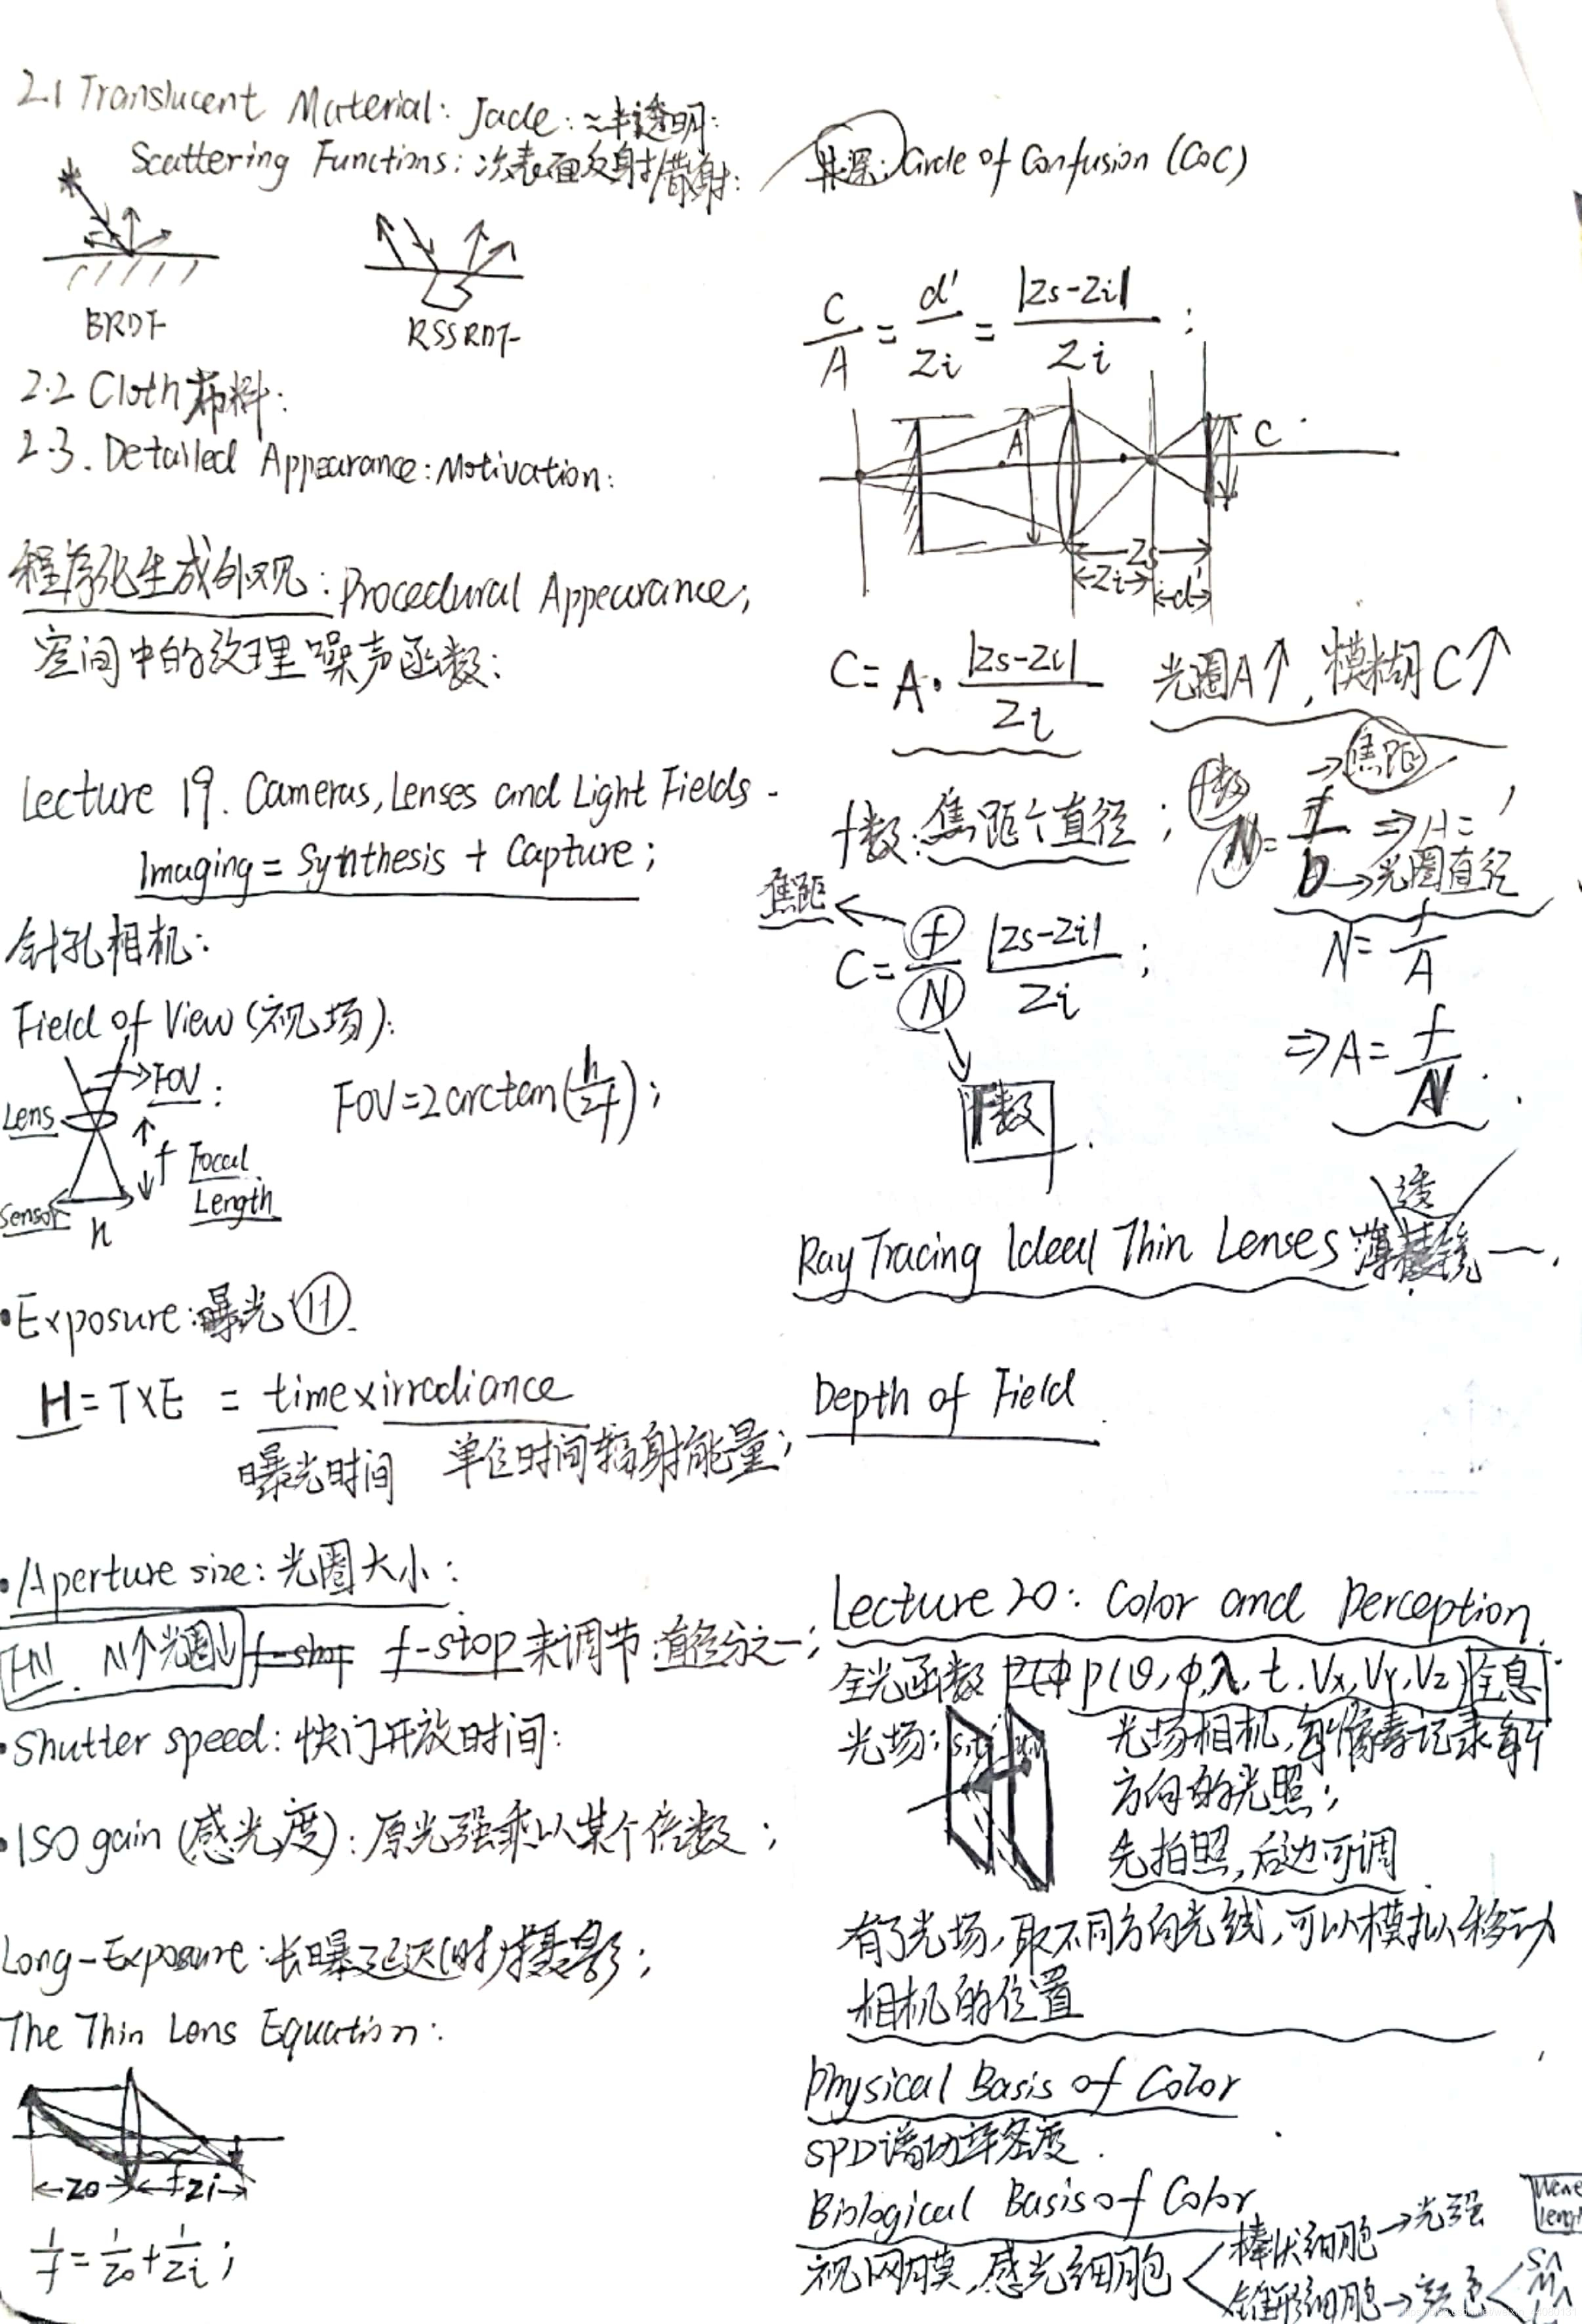 2.1 Translucent Material: Jade: ≈半透明:
Scattering Functions: 次表面反射/散射:
BRDF
2.2 Cloth 布料:
2.3. Detailed Appearance: Motivation:
程序化生成外观: Procedural Appearance;
空间中的纹理 噪声函数:
Lecture 19. Cameras, Lenses and Light Fields -
Imaging = Synthesis + Capture;
针孔相机:
Field of View (视场):
FOV:
Lens
f Focal
Length
Sensor
h
FOV=2arctan(h/2f);
•Exposure: 曝光 H
H=T×E = time×irradiance
曝光时间 单位时间辐射能量;
•Aperture size: 光圈大小:
FN N↑光圈↓ f-stop f-stop 来调节:直径分之一;
•Shutter speed: 快门开放时间:
•ISO gain (感光度): 原光强乘以某个倍数;
Long-Exposure: 长曝延迟(时)摄影;
The Thin Lens Equation:
zo f zi
1/f = 1/zo + 1/zi;
景深: Circle of Confusion (CoC)
C/A = d'/Zi = |Zs-Zi|/Zi;
A
C
Zs
Zi d'
C= A· |Zs-Zi|/Zi 光圈A↑, 模糊C↑
f数: 焦距个直径;
f数 N= f/D ⇒A=
→焦距
→光圈直径
焦距
C= f/N |Zs-Zi|/Zi;
N= f/A
⇒A= f/N.
F数
Ray Tracing Ideal Thin Lenses 薄透镜
Depth of Field
Lecture 20: Color and Perception.
全光函数 P(θ, φ, λ, t, Vx, Vy, Vz) 全息
光场:
光场相机, 每像素记录每个
方向的光照;
先拍照,后边可调
有了光场,取不同方向光线,可以模拟移动
相机的位置
Physical Basis of Color
SPD 谱功率密度.
Biological Basis of Color
视网膜,感光细胞
棒状细胞→光强
锥形细胞→颜色
S
M